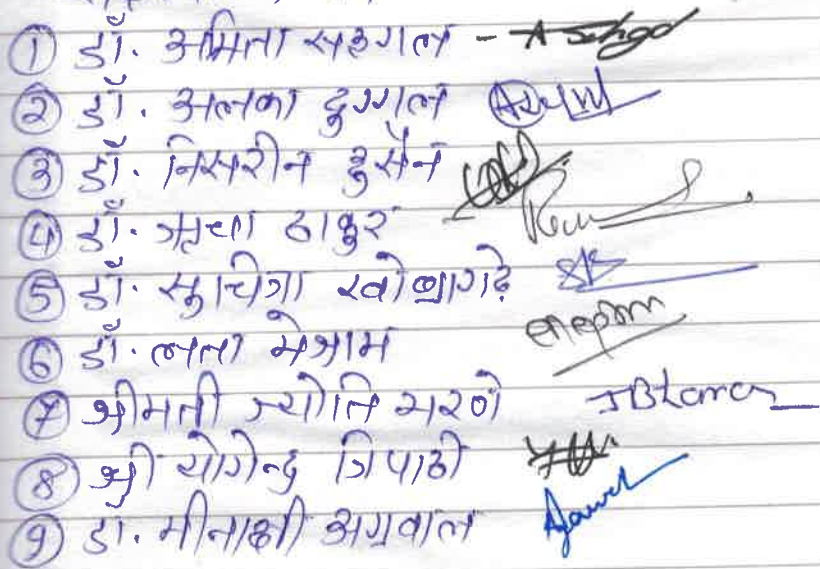 ① डॉ. अमिता सहगल - A Sehgal
② डॉ. अलका दुग्गल
③ डॉ. निसरीन हुसैन
④ डॉ. ऋचा ठाकुर
⑤ डॉ. सुचित्रा खोब्रागढे
⑥ डॉ. लता मेश्राम
⑦ श्रीमती ज्योति भरणे JBharan
⑧ श्री योगेन्द्र त्रिपाठी
⑨ डॉ. मीनाक्षी अग्रवाल